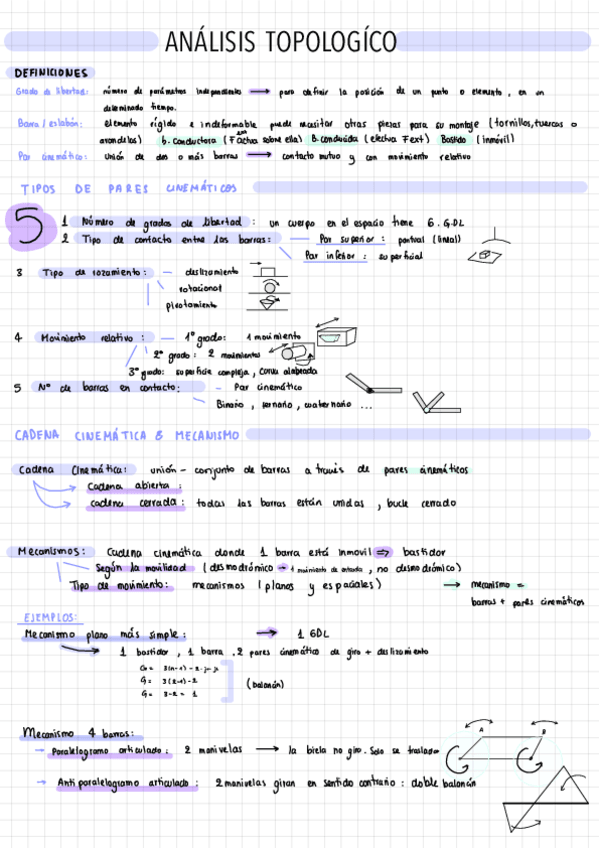 ANÁLISIS TOPOLOGÍCO
DEFINICIONES
Grado de libertad: número de parámetros independientes → para definir la posición de un punto o elemento, en un
determinado tiempo.
Barra / eslabón: elemento rígido e indeformable puede necesitar otras piezas para su montaje (tornillos, tuercas o
arandelas) b. conductora (Factua sobre ella) B. conducida (efectua Fext) Bastido (inmóvil)
Par cinemático: unión de dos o más barras → contacto mutuo y con movimiento relativo
TIPOS DE PARES CINEMÁTICOS
5
1 Número de grados de libertad : un cuerpo en el espacio tiene 6. GDL
2 Tipo de contacto entre las barras: Par superior : puntual (lineal)
Par inferior : superficial
3 Tipo de rozamiento: deslizamiento
rotacional
pivotamiento
4 Movimiento relativo : 1º grado: 1 movimiento
2º grado : 2 movimientos
3º grado: superficie compleja, curva alabeada
5 Nº de barras en contacto: Par cinemático
Binario, ternario, cuaternario ...
CADENA CINEMÁTICA & MECANISMO
Cadena Cinemática: unión - conjunto de barras a través de pares cinemáticos
Cadena abierta :
cadena cerrada : todas las barras están unidas, bucle cerrado
Mecanismos: Cadena cinemática donde 1 barra está inmovil => bastidor
Según la movilidad (desmodrónico → 1 movimiento de entrada, no desmodrómico)
Tipo de movimiento: mecanismos (planos y espaciales) → mecanismo =
barras + pares cinemáticos
EJEMPLOS:
Mecanismo plano más simple : → 1 GDL
1 bastidor, 1 barra, 2 pares cinemático de giro + deslizamiento
G= 3(n-1) - 2·j₁-j₂
G= 3(2-1)-2
G= 3-2 = 1
(balancín)
Mecanismo 4 barras:
→ Paralelogramo articulado: 2 manivelas → la biela no gira. Solo se traslada
A B
→ Antiparalelogramo articulado : 2 manivelas giran en sentido contrario : doble balancín